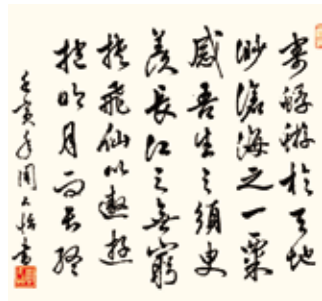 寄蜉蝣於天地
渺滄海之一粟
感吾生之須臾
羨長江之無窮
挾飛仙以遨遊
抱明月而長終
壬寅年周書